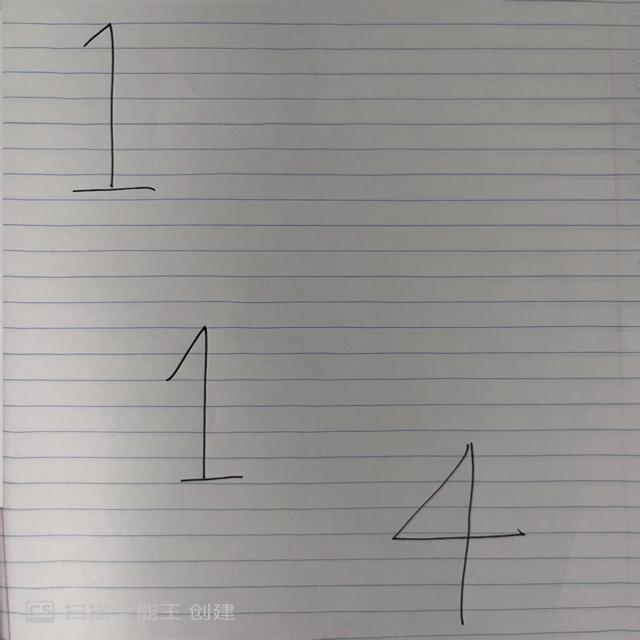 1
1
4
CS 扫描全能王 创建